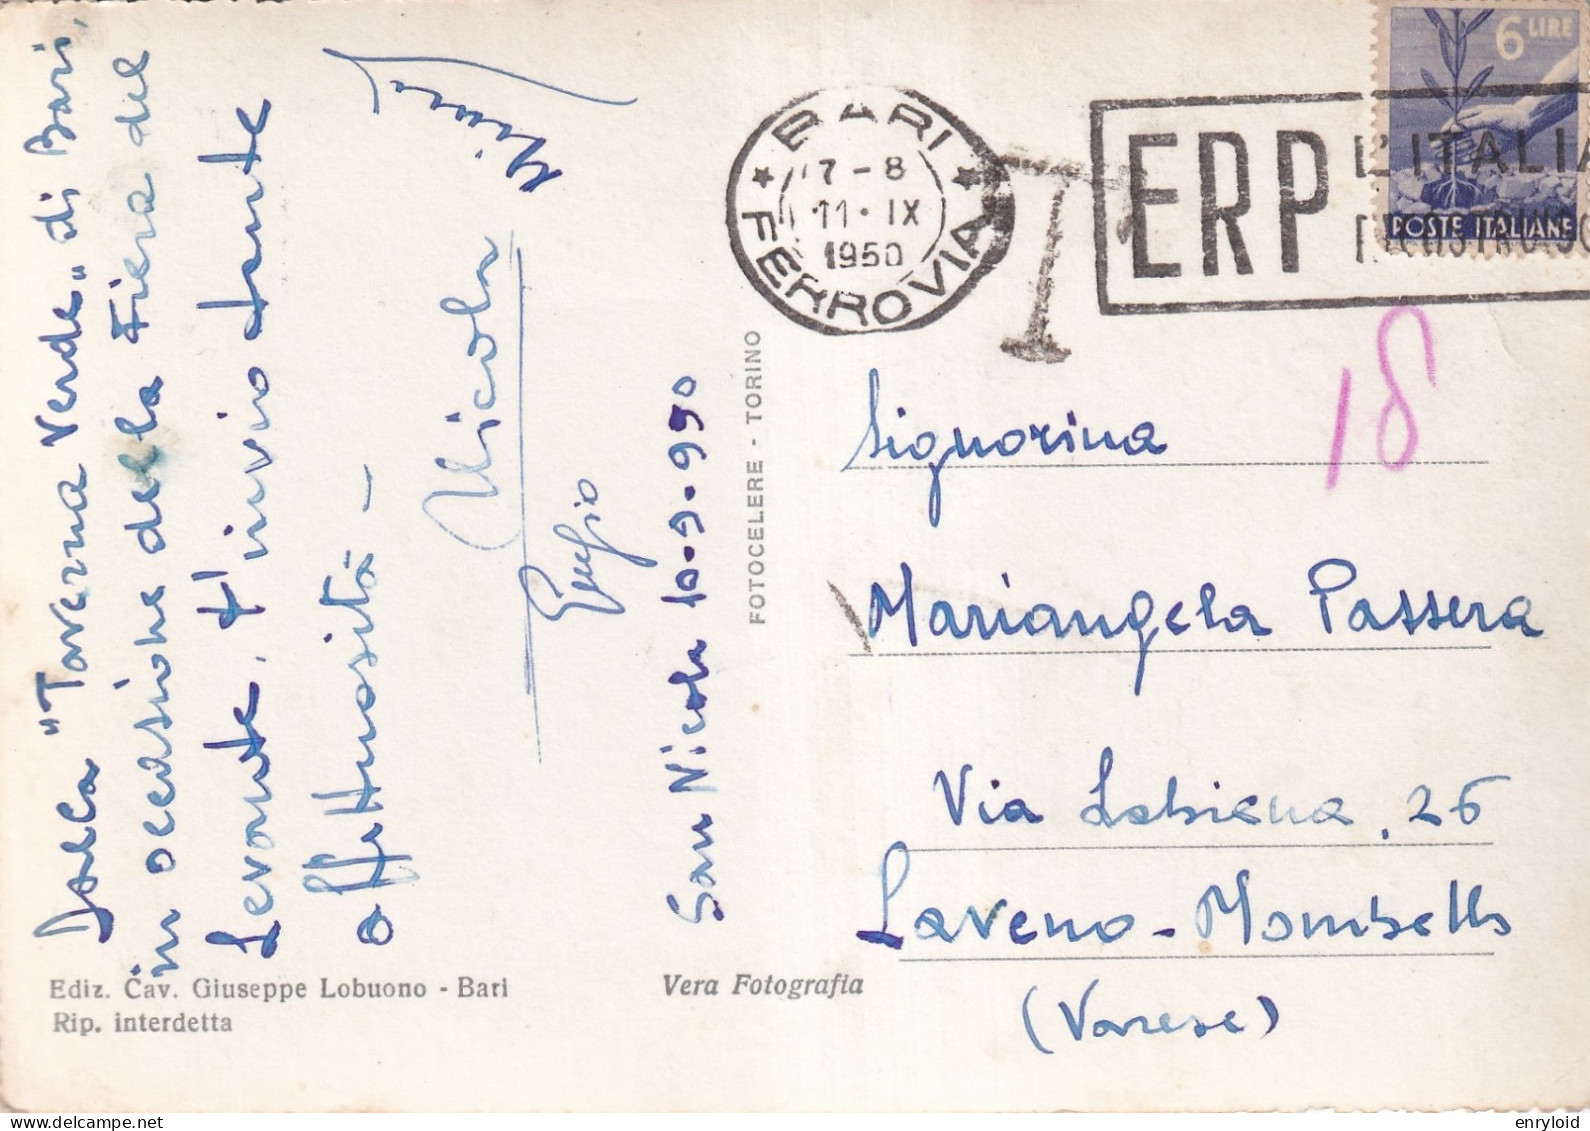 Dalla "Taverna Verde" di Bari,
in occasione della Fiera del
Levante, t'invio tante
affettuosità -
Nicola
San Nicola 10-9-950
Ediz. Cav. Giuseppe Lobuono - Bari
Rip. interdetta
Vera Fotografia
FOTOCELERE - TORINO
BARI
7-8
11·IX
1950
FERROVIA
T
ERP
L'ITALIA
6 LIRE
POSTE ITALIANE
18
Signorina
Mariangela Passera
Via Labiena, 26
Laveno-Mombello
(Varese)
enryloid